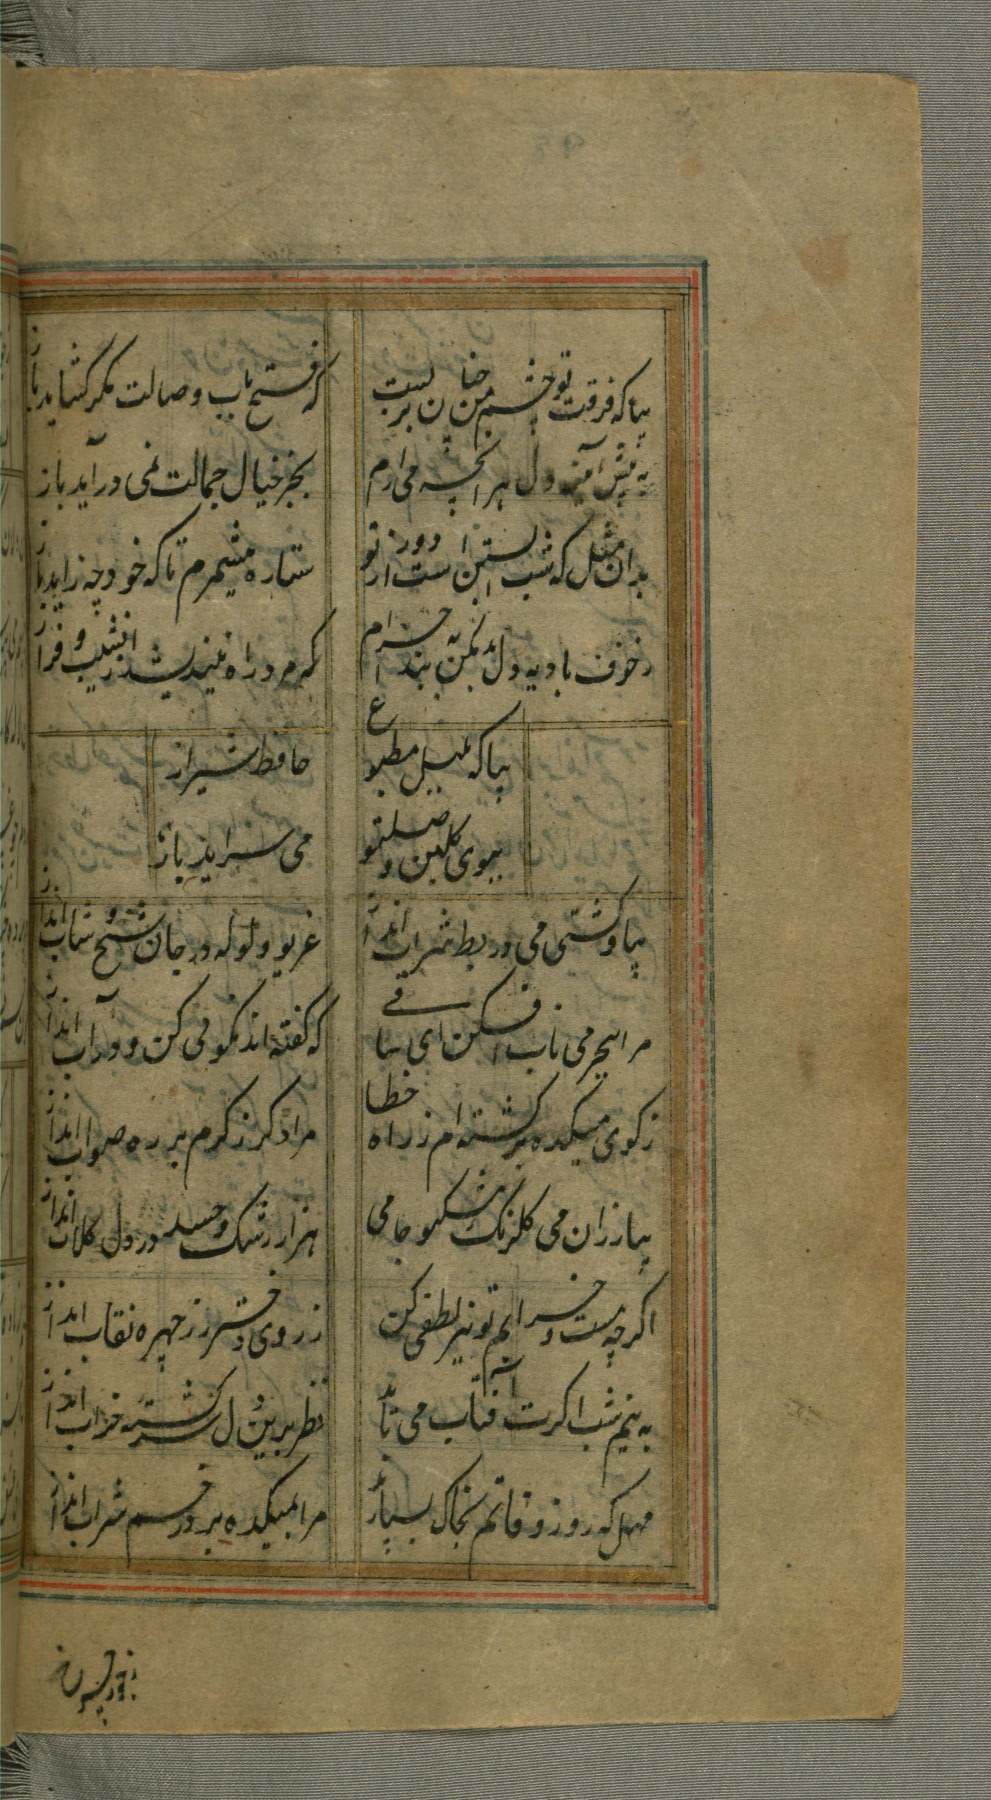 بیا که فرقت تو چشم من چنان بربست
که فتح باب وصالت مکر کشاید باز
به پیش آینه دل هر آنچه می دارم
بجز خیال جمالت نمی درآید باز
بدان مثل که شب آبستن است دور از تو
ستاره میشمرم تا که خود چه زاید باز
ز خوف بادیه دل بد مکن به بند احرام
که مرد راه نیندیشد از نشیب و فراز
بیا که بلبل مطبوع
حافظ شیراز
ببوی کلبن وصل تو
می سراید باز
بیا و کشتی می در بط شراب انداز
غریو و ولوله در جان شیخ و شاب انداز
مرا بحر می ناب افکن ای ساقی
که کفته اند نکوئی کن و در آب انداز
ز کوی میکده برکشته ام ز راه خطا
مرا دکر ز کرم بر ره صواب انداز
بیار زان می کلرنک مشکبو جامی
هزار رشک و حسد در دل کلاب انداز
اکرچه مست و خرابم تو نیز لطفی کن
ز روی دختر رز چهره نقاب انداز
به نیم شب اکرت آفتاب می تابد
نظر برین دل سرکشته خراب انداز
مهل که روز وفاتم بخاک بسپارند
مرا بمیکده بر در خم شراب انداز